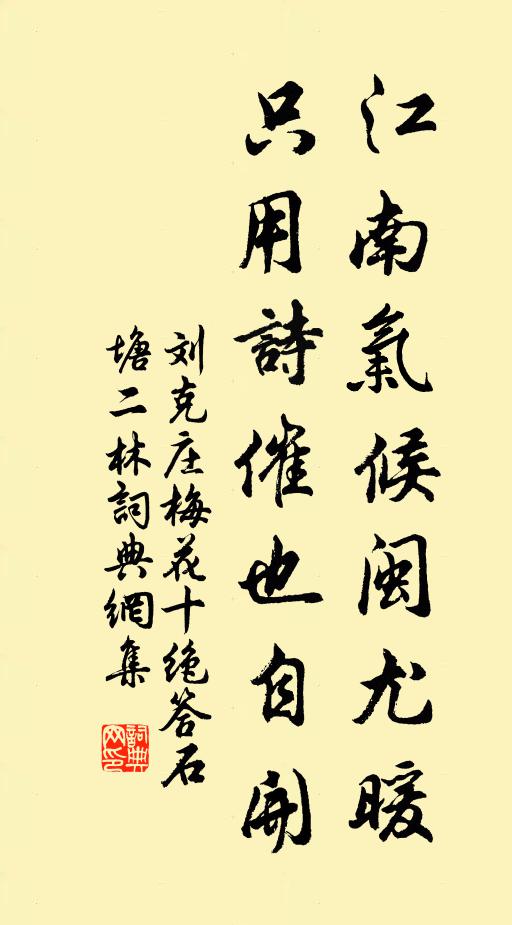 江南氣候閩尤暖
只用詩催也自開
刘克庄梅花十绝答石
塘二林詞典網集
詞典
网印